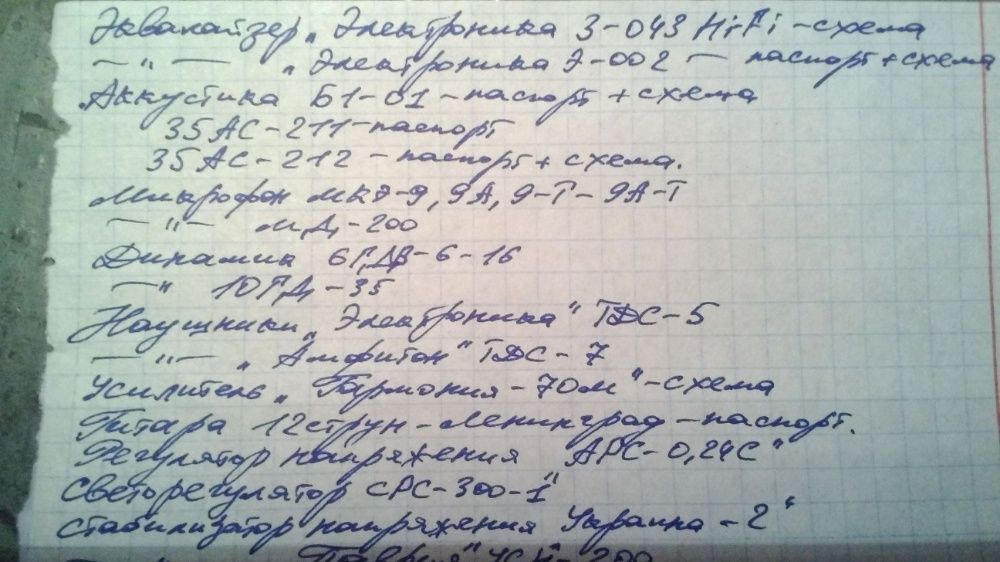 Эквалайзер „Электроника Э-043 Hi-Fi - схема
— " — „Электроника Э-002 — паспорт + схема
Аккустика Б1-01 - паспорт + схема
35АС-211 - паспорт
35АС-212 - паспорт + схема.
Микрофон МКЭ-9, 9А, 9-Т - 9А-Т
— " — МД-200
Динамик 6ГДВ-6-16
— " 10ГД-35
Наушники „Электроника" ТДС-5
— " — „Амфитон" ТДС-7
Усилитель „Гармония-70м" - схема
Гитара 12струн - Ленинград - паспорт.
Регулятор напряжения АРС-0,24С"
Светорегулятор СРС-300-1"
Стабилизатор напряжения Украина-2"
УСН-200